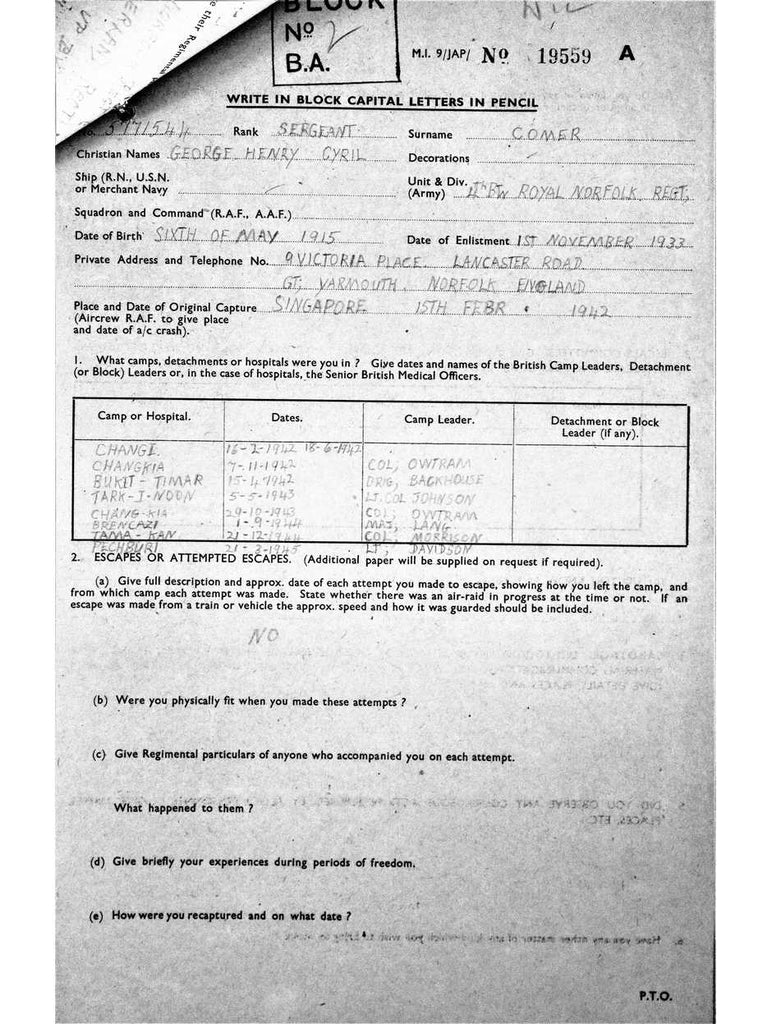 their Regimental
BLOCK
Nº 2
B.A.
NIL
M.I. 9/JAP/ Nº 19559 A
WRITE IN BLOCK CAPITAL LETTERS IN PENCIL
5771544 Rank SERGEANT Surname COMER
Christian Names GEORGE HENRY CYRIL Decorations
Ship (R.N., U.S.N. or Merchant Navy Unit & Div. (Army) 4th BN ROYAL NORFOLK REGT;
Squadron and Command (R.A.F., A.A.F.)
Date of Birth SIXTH OF MAY 1915 Date of Enlistment 1ST NOVEMBER 1933
Private Address and Telephone No. 9 VICTORIA PLACE. LANCASTER ROAD
GT; YARMOUTH. NORFOLK ENGLAND
Place and Date of Original Capture SINGAPORE 15TH FEBR 1942
(Aircrew R.A.F. to give place
and date of a/c crash).
1. What camps, detachments or hospitals were you in ? Give dates and names of the British Camp Leaders, Detachment
(or Block) Leaders or, in the case of hospitals, the Senior British Medical Officers.
Camp or Hospital. Dates. Camp Leader. Detachment or Block Leader (if any).
CHANGI. 16-2-1942 18-6-1942
CHANGKIA 7-11-1942 COL; OWTRAM
BUKIT-TIMAR 15-4-1942 BRIG, BACKHOUSE
TARK-I-NOON 5-5-1943 LT. COL JOHNSON
CHANG-KIA 29-10-1943 COL; OWTRAM
BRENCAZI 1-9-1944 MAJ, LANG
TAMA-KAN 21-12-1944 COL; MORRISON
PECHBURI 21-2-1945 LT; DAVIDSON
2. ESCAPES OR ATTEMPTED ESCAPES. (Additional paper will be supplied on request if required).
(a) Give full description and approx. date of each attempt you made to escape, showing how you left the camp, and
from which camp each attempt was made. State whether there was an air-raid in progress at the time or not. If an
escape was made from a train or vehicle the approx. speed and how it was guarded should be included.
NO
(b) Were you physically fit when you made these attempts ?
(c) Give Regimental particulars of anyone who accompanied you on each attempt.
What happened to them ?
(d) Give briefly your experiences during periods of freedom.
(e) How were you recaptured and on what date ?
P.T.O.